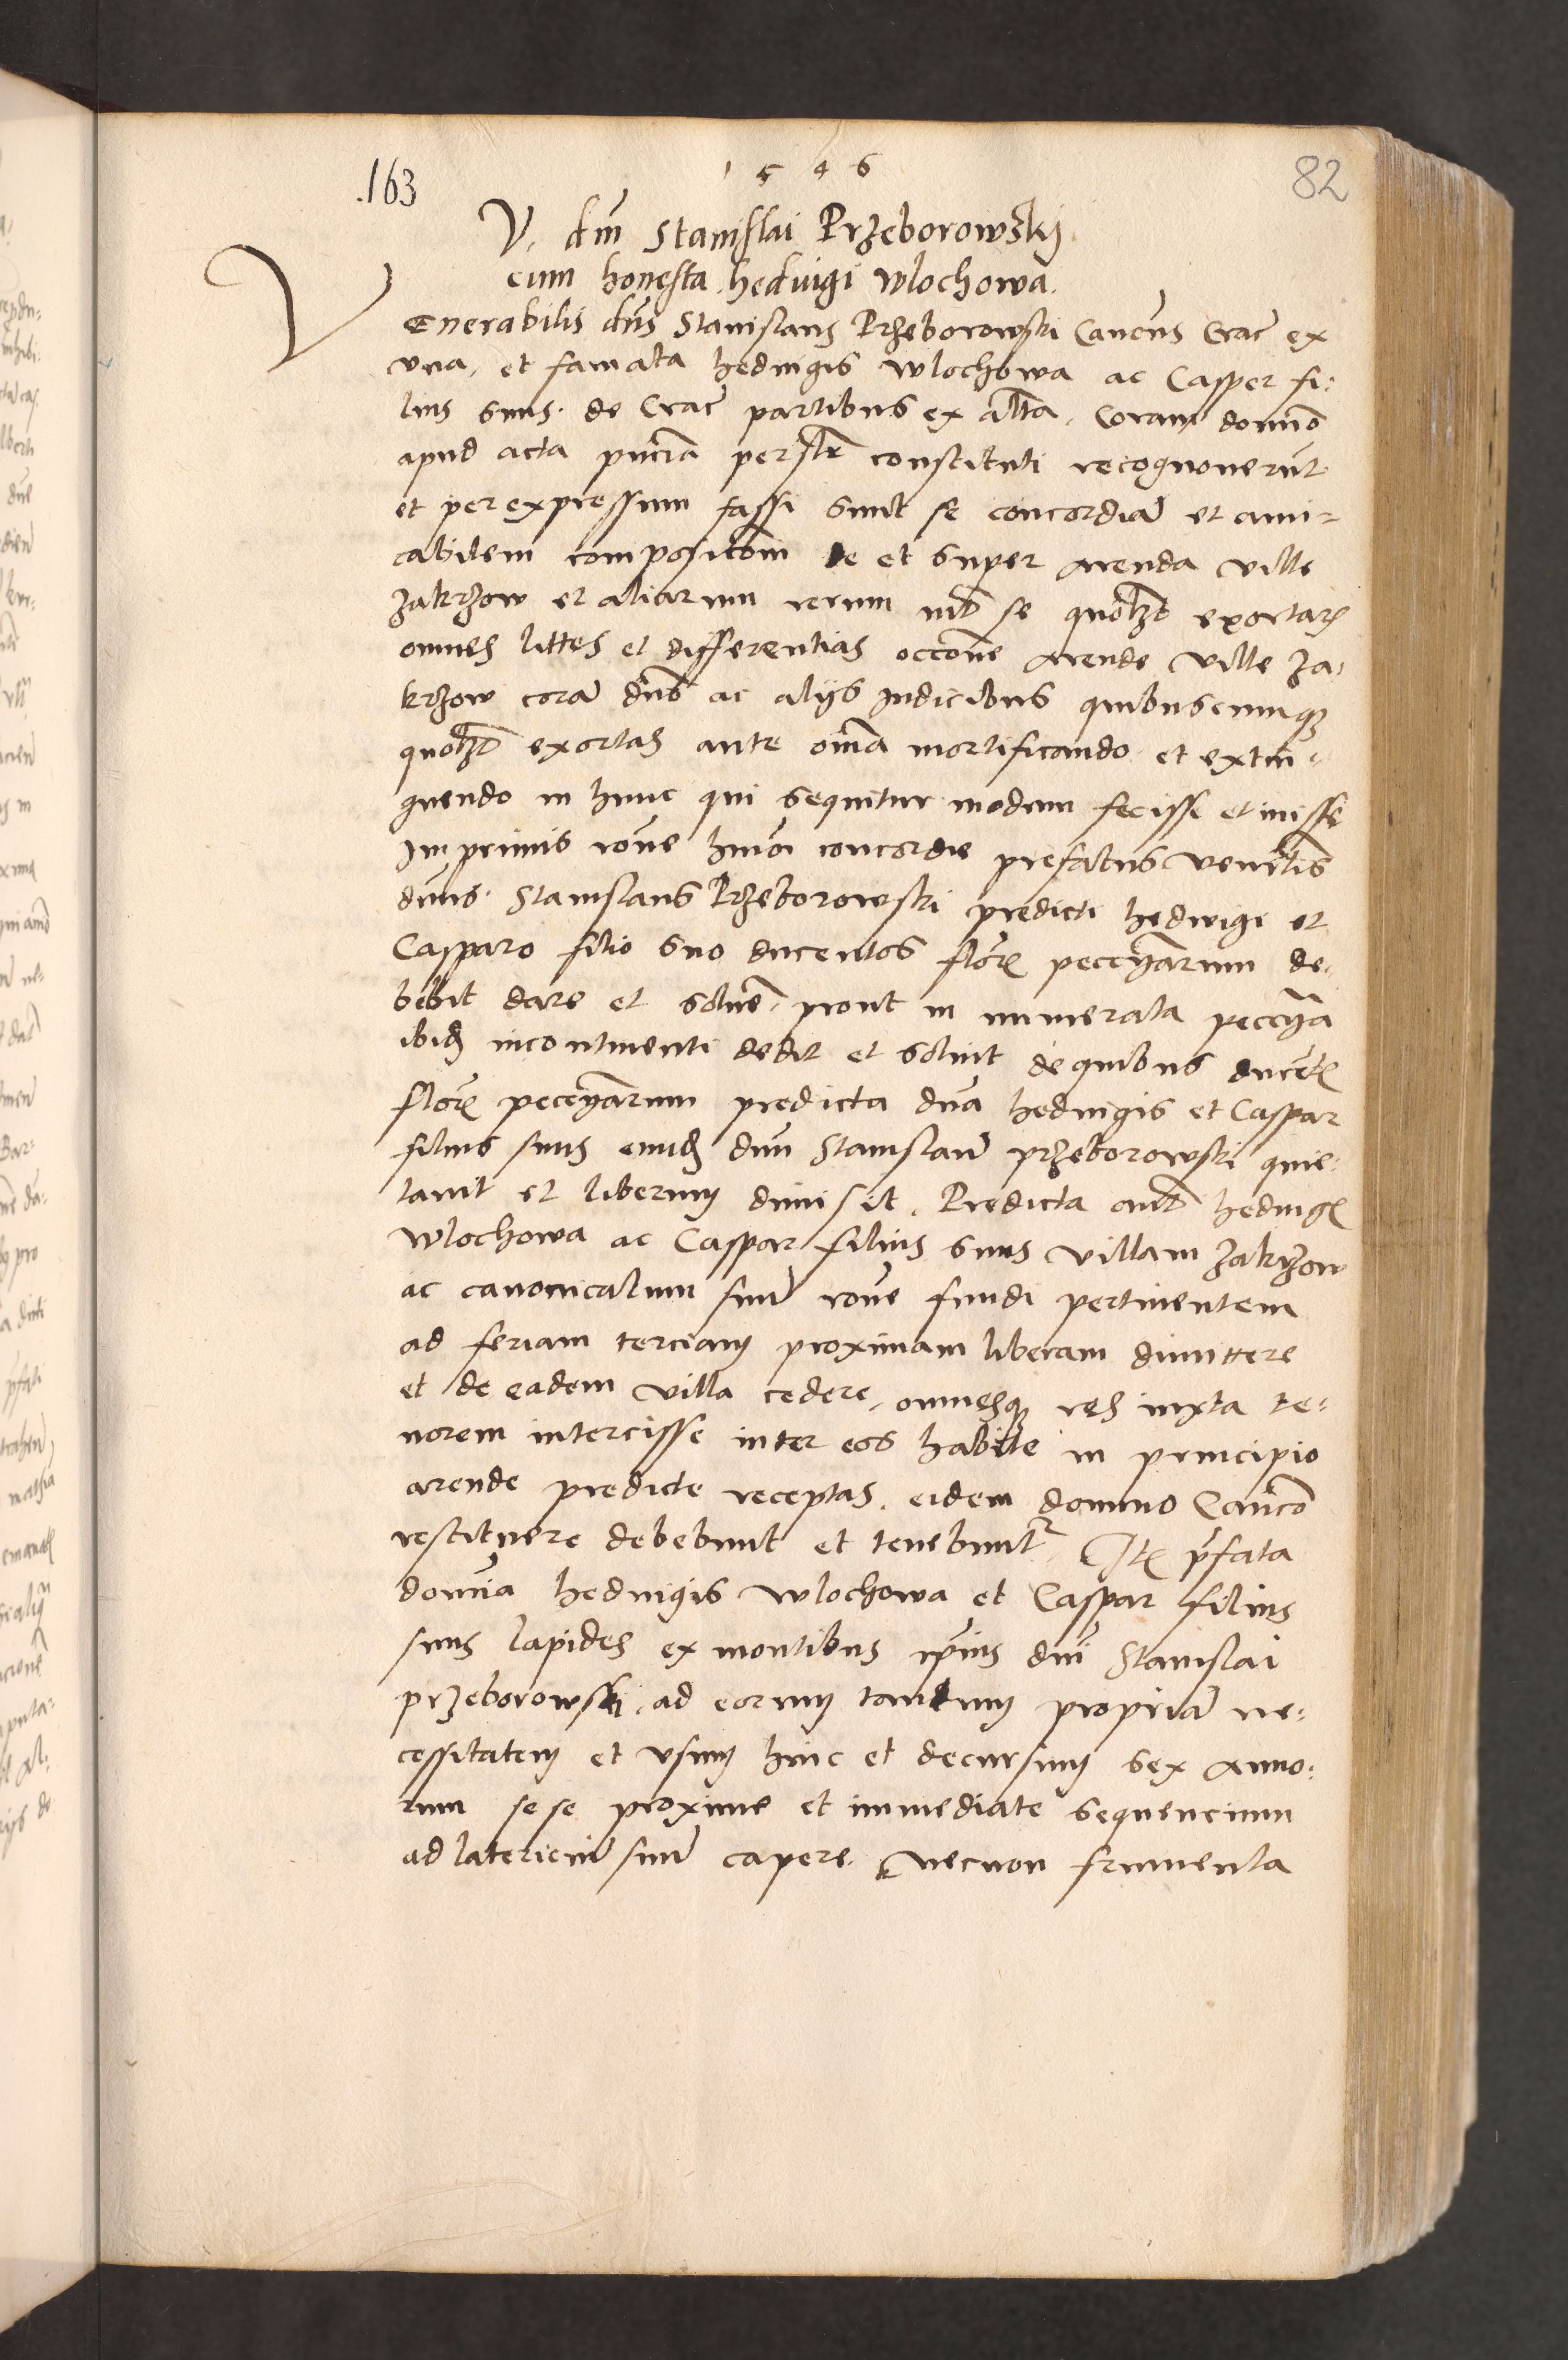 163
1546
82
V. dni Stanislai Przeborowskj
cum honesta hedvigi wlochowa.
Venerabilis dns Stanislaus Przeborowski Cancus Crac ex
vna, et famata hedvigis wlochowa ac Casper fi:
lius suus. de Crac partibus ex altera. Coram domino
apud acta pncia perslr constituti recognouerut
et per expressum fassi sunt se concordia et ami=
cabilem compositom de et super arenda ville
Zakrzow et aliarum rerum int se quolzt exortar
omnes littes et differentias occone arende ville Za,
krzow cora dnis ac alijs Judicibus quibuscumq
quolzt exortas ante oina mortificando et extin=
guendo in hunc qui sequitur modum fecisse et inisse
Jmprimis rone hmoi concordie prefatus venrlis
dnus. Stanislaus Przeborowski predicte hedwigi et
Casparo filio suo ducentos flor peccyarum de,
bebit dare et soluer, prout in numerata peccya
ibid incontinenti dedit et soluit de quibus ducet
flor peccyarum predicta dna hedvigis et Caspar
filius suus eund dnu Stanislau przeborowski quie,
tauit et liberum dimisit. Predicta aut hedvigis
Wlochowa ac Caspar filius suus villam Zakrzow
ac canonicatum suu rone fundi pertinentem
ad feriam terciam proximam liberam dimittere
et de eadem villa cedere, omnesq res iuxta te:
norem intercisse inter eos habite in principio
arende predicte receptas. eidem domino Canco
restituere debebunt et tenebuntr Jt pfata
domia hedvigis wlochowa et Caspar filius
suus lapides ex montibus ipius dni Stanislai
przeborowski, ad eorum tantum propria ne:
cessitatem et vsum hinc et decursum sex anno:
rum sese proxime et immediate sequencium
ad latericiu suu capere. Necnon frumenta